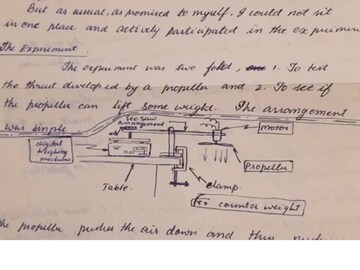 But as usual, as promised to myself, I could not sit
in one place and actively participated in the experiment
The Experiment
The experiment was two fold, 1. To test
the thrust developed by a propeller and 2. To see if
the propeller can lift some weight. The arrangement
was simple
See Saw
arrangement
motor
digital
weighing
machine
Propeller
Table.
clamp.
counter weight
the propeller pushes the air down and thus